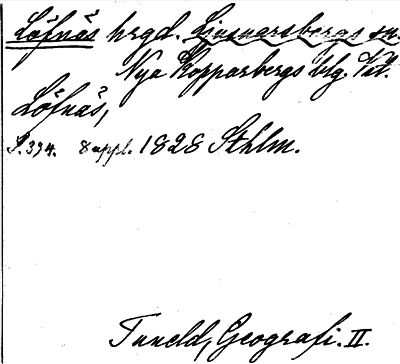 Löfnäs hrgd. Ljusnarsbergs sn.
Nya Kopparbergs blg. Vtl.
Löfnäs,
S. 394. 8 uppl. 1828 Sthlm.
Tuneld, Geografi. II.